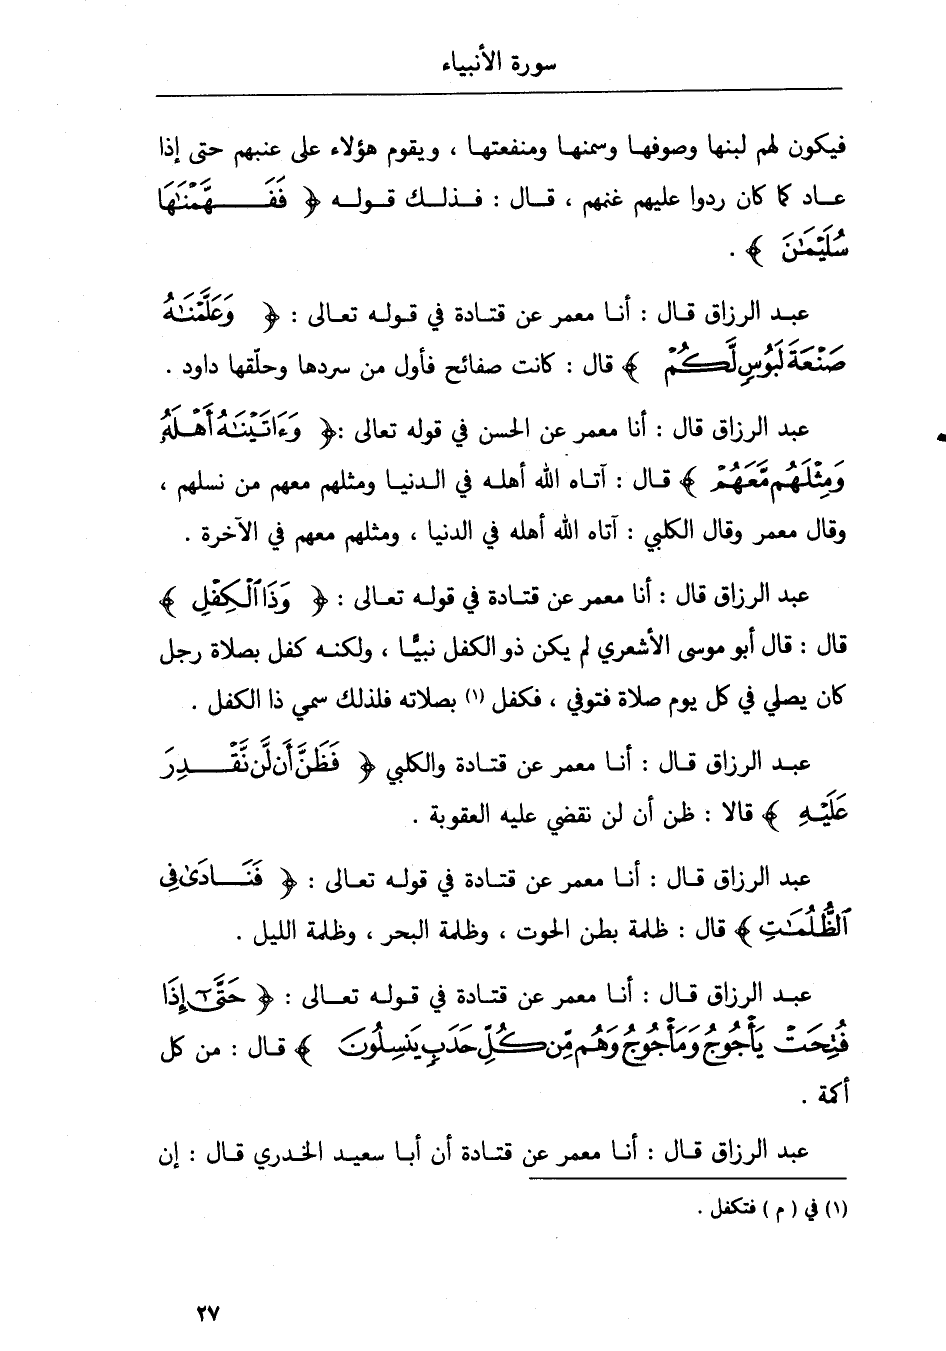 سورة الأنبياء
فيكون لهم لبنها وصوفها وسمنها ومنفعتها ، ويقوم هؤلاء على عنبهم حتى إذا
عاد كما كان ردوا عليهم غنمهم ، قال : فذلك قوله ﴿ فَفَهَّمْنَٰهَا
سُلَيْمَٰنَ ﴾ .
عبد الرزاق قال : أنا معمر عن قتادة في قوله تعالى : ﴿ وَعَلَّمْنَٰهُ
صَنْعَةَ لَبُوسٍ لَّكُمْ ﴾ قال : كانت صفائح فأول من سردها وحلّقها داود .
عبد الرزاق قال : أنا معمر عن الحسن في قوله تعالى :﴿ وَءَاتَيْنَٰهُ أَهْلَهُ
وَمِثْلَهُم مَّعَهُمْ ﴾ قال : آتاه الله أهله في الدنيا ومثلهم معهم من نسلهم ،
وقال معمر وقال الكلبي : آتاه الله أهله في الدنيا ، ومثلهم معهم في الآخرة .
عبد الرزاق قال : أنا معمر عن قتادة في قوله تعالى : ﴿ وَذَا ٱلْكِفْلِ ﴾
قال : قال أبو موسى الأشعري لم يكن ذو الكفل نبيًّا ، ولكنه كفل بصلاة رجل
كان يصلي في كل يوم صلاة فتوفي ، فكفل (١) بصلاته فلذلك سمي ذا الكفل .
عبد الرزاق قال : أنا معمر عن قتادة والكلبي ﴿ فَظَنَّ أَن لَّن نَّقْدِرَ
عَلَيْهِ ﴾ قالا : ظن أن لن نقضي عليه العقوبة .
عبد الرزاق قال : أنا معمر عن قتادة في قوله تعالى : ﴿ فَنَادَىٰ فِي
ٱلظُّلُمَٰتِ ﴾ قال : ظلمة بطن الحوت ، وظلمة البحر ، وظلمة الليل .
عبد الرزاق قال : أنا معمر عن قتادة في قوله تعالى : ﴿ حَتَّىٰٓ إِذَا
فُتِحَتْ يَأْجُوجُ وَمَأْجُوجُ وَهُم مِّن كُلِّ حَدَبٍ يَنسِلُونَ ﴾ قال : من كل
أكمة .
عبد الرزاق قال : أنا معمر عن قتادة أن أبا سعيد الخدري قال : إن
(١) في ( م ) فتكفل .
٢٧